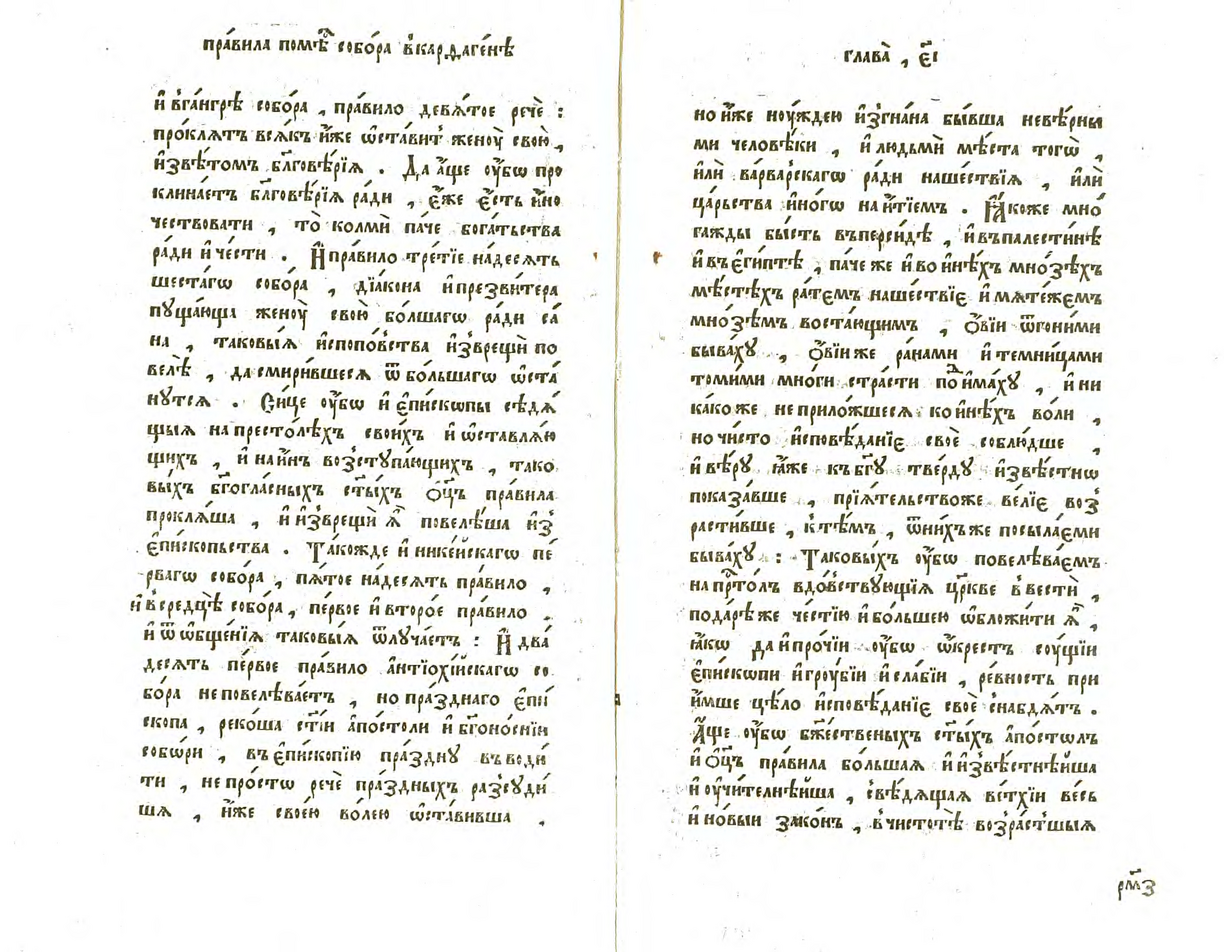 пра́вила помѣ́ⷭ҇ собо́ра в̾кардаге́нѣ
и҆ в̾га́нгрѣ собо́ра , пра́вило девѧ́тое речѐ :
про́клѧтъ всѧ́къ и҆́же ѡ҆ста́витъ женоу̀ свою̀ ,
и҆звѣ́томъ бл҃говѣ́рїѧ . Да а҆́ще оу҆́бѡ про
клина́етъ бл҃говѣ́рїѧ ра́ди , є҆́же є҆́сть и҆́но
чествовати , то̀ колмѝ па́че бога́тьства
ра́ди и҆ че́сти . И҆ пра́вило тре́тїе на́десѧть
шеста́гѡ собо́ра , дїа́кона и҆ презви́тера
пꙋща́юща женоу̀ свою̀ бо́лшагѡ ра́ди са́
на , таковы́ѧ и҆спопо́вства и҆зврещѝ по
велѣ̀ , да смири́вшесѧ ѿ бо́льшагѡ ѡ҆ста́
нутсѧ . Си́це оу҆́бѡ и҆ є҆пи́скѡпы сѣдѧ́
щыѧ на престо́лѣхъ свои́хъ и҆ ѡ҆ставлѧ́ю
щихъ , и҆ на и҆́нъ воз̾стꙋпа́ющихъ , тако
вы́хъ бг҃огла́сныхъ ст҃ы́хъ ѻ҆ц҃ъ пра́вила
проклѧ́ша , и҆ и҆з̾врещѝ ѧ҆̀ повелѣ́ша и҆з̾
є҆пи́скопьства . Та́кожде и҆ нике́йскагѡ пе́
рвагѡ собо́ра , пѧ́тое на́десѧть пра́вило ,
и҆ в̾средцѣ̀ собо́ра , пе́рвое и҆ второ́е пра́вило .
и҆ ѿ ѡ҆бще́нїѧ таковы́ѧ ѿлꙋча́етъ : И҆ два́
десѧть пе́рвое пра́вило а҆нтїѻхі́йскагѡ со
бо́ра не повелѣва́етъ , но пра́зднаго є҆пи́
скопа , реко́ша ст҃і́и а҆по́столи и҆ бг҃оно́снїи
собѡ́ри , въ є҆писко́пїю пра́зднꙋ въводи́
ти , не про́стѡ речѐ пра́здныхъ раз̾сꙋди́
шѧ , и҆́же свое́ю во́лею ѡ҆ста́вивша .
глава̀ , є҃і
но и҆́же ноу́ждею и҆з̾гна́на бы́вша невѣ́рны
ми человѣ́ки , и҆ людьмѝ мѣ́ста тогѡ̀ ,
и҆лѝ ва́рварскагѡ ра́ди наше́ствїѧ , и҆лѝ
ца́рьства и҆но́гѡ на и҆́тїемъ . Ꙗ҆́коже мно́
гажды бы́сть въ персі́дѣ , и҆ въ палести́нѣ
и҆ въ є҆гі́птѣ , па́че же и҆ во и҆нѣ́хъ мно́зѣхъ
мѣ́стѣхъ ра́темъ наше́ствїе и҆ мѧте́жемъ
мно́зѣмъ востаю́щимъ , ѻ҆́вїи ѿгони́ми
быва́хꙋ , ѻ҆́вїи же ра́нами и҆ темни́цами
томи́ми мно́ги стра́сти поⷣи҆ма́хꙋ , и҆ ни
ка́ко же не прило́жшесѧ ко и҆нѣ́хъ во́ли ,
но чи́сто и҆сповѣ́данїе своѐ соблю́дше ,
и҆ вѣ́рꙋ ꙗ҆́же къ бг҃ꙋ тве́рдꙋ и҆звѣ́стнѡ
показа́вше , прїѧ́тельство же ве́лїе воз̾
расти́вше , к̾ тѣ́мъ , ѿ ни́хъ же посыла́еми
быва́хꙋ : Таковы́хъ оу҆́бѡ повелѣва́емъ
на прⷭ҇то́лъ вдо́вствꙋющїѧ цр҃кве в̾вестѝ ,
пода́рѣ же че́стїю и҆ бо́льшею ѡ҆бложи́ти ѧ҆̀ ,
ꙗ҆́кѡ да и҆ про́чїи оу҆́бѡ ѡ҆́крестъ соу́щїи
є҆пи́скѡпи и҆ гроу́бїи и҆ сла́бїи , ре́вность при
и҆́мше цѣ́ло и҆сповѣ́данїе своѐ снабдѧ́тъ .
А҆́ще оу҆́бѡ бж҃е́ственыхъ ст҃ы́хъ а҆по́столъ
и҆ ѻ҆ц҃ъ пра́вила бо́льшая и҆ и҆звѣ́стнѣйша
и҆ оу҆чи́телнѣйша , свѣ́дѧщая ве́тхїи ве́сь
и҆ но́выи зако́нъ , в̾чистотѣ̀ воз̾ра́стшыѧ
рм҃з